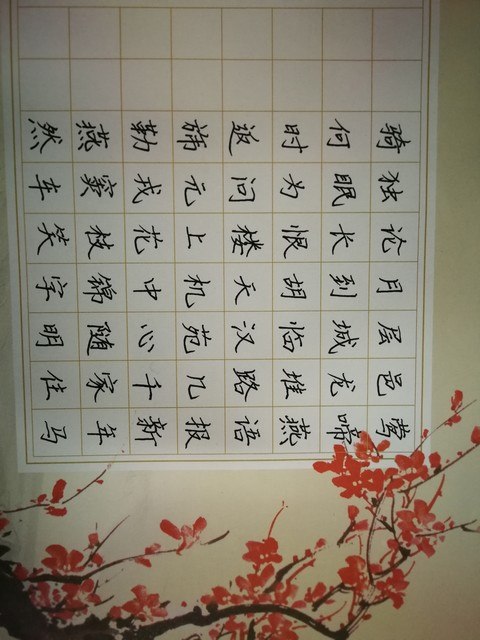 莺啼燕语报新年马
邑龙堆路几千家住
层城临汉苑心随明
月到胡天机中锦字
论长恨楼上花枝笑
独眠为问元戎窦车
骑何时返旆勒燕然